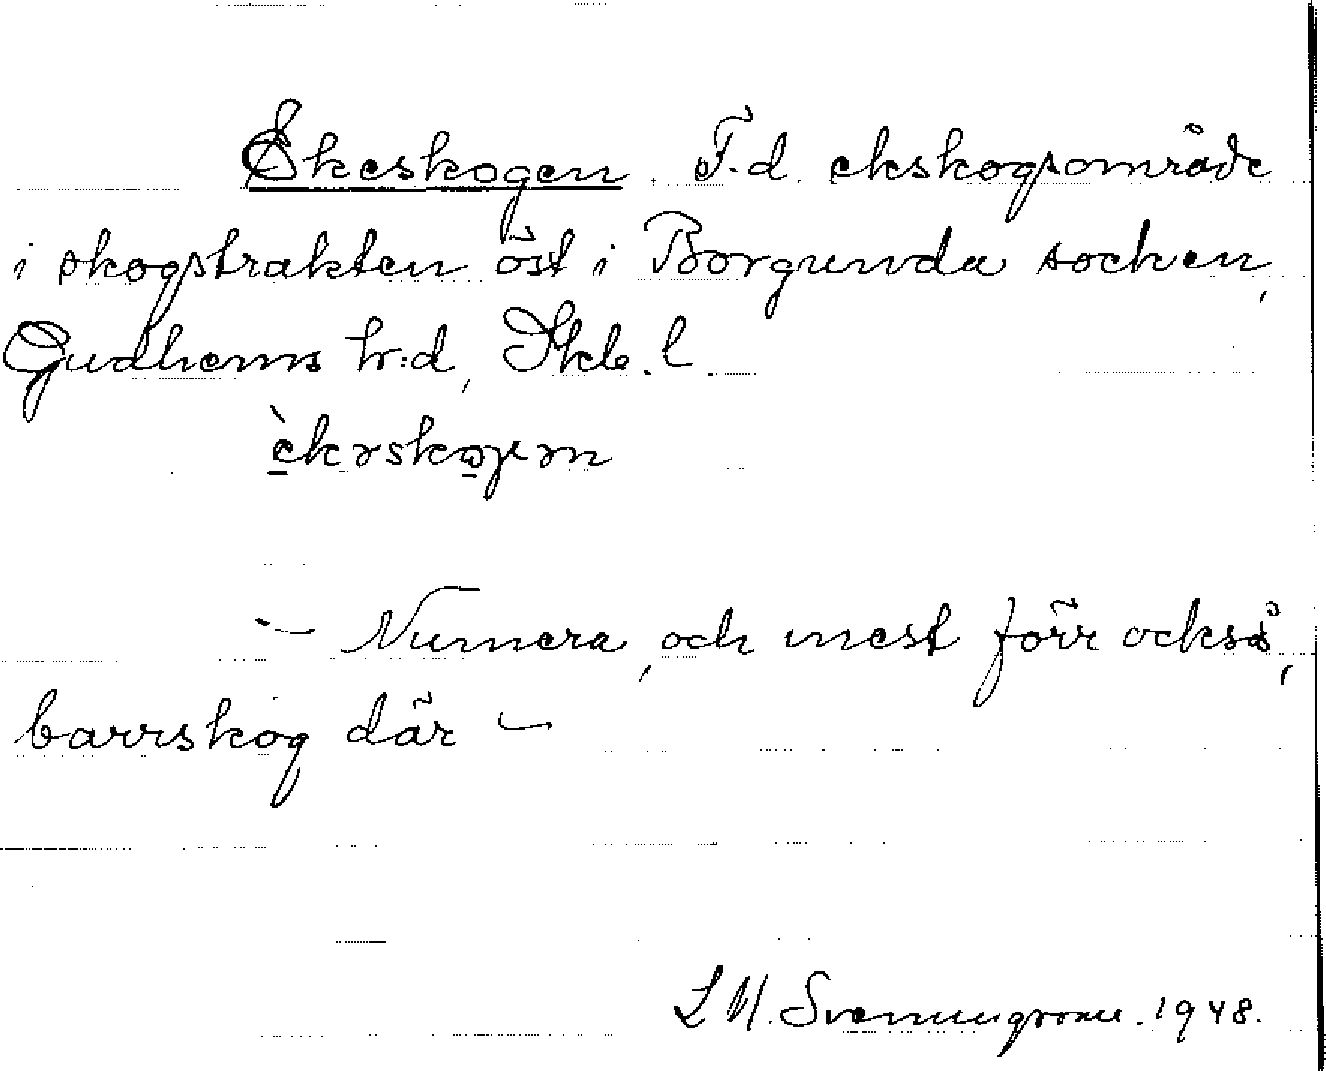 Ekeskogen. F.d. ekskogsområde
i skogstrakten öst i Borgunda socken,
Gudhems hr:d, Skb. l.
– Numera, och mest förr också,
barrskog där –
L M. Svenungsson. 1948.